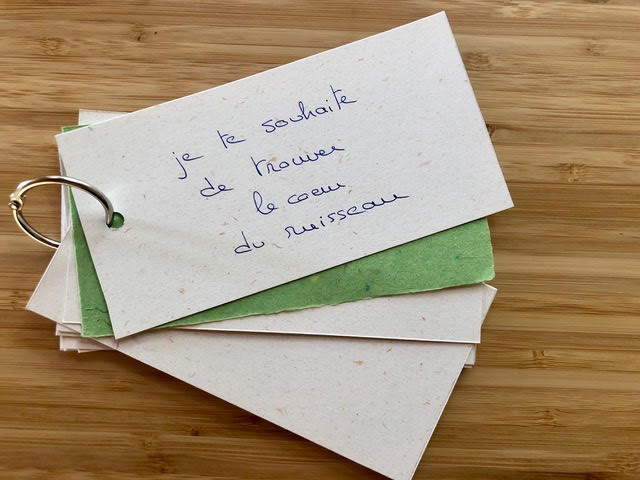 je te souhaite
de trouver
le coeur
du ruisseau